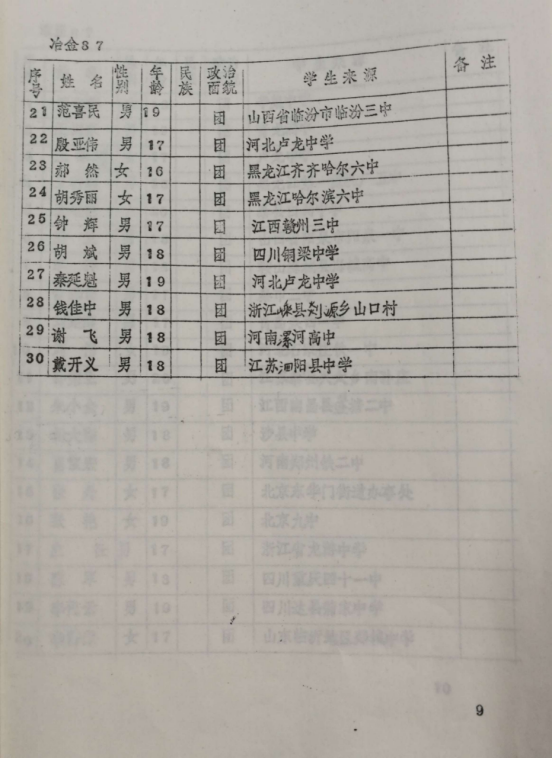 冶金87
序号 姓名 性别 年龄 民族 政治面貌 学生来源 备注
21 范喜民 男 19 团 山西省临汾市临汾三中
22 殷亚伟 男 17 团 河北卢龙中学
23 郝然 女 16 团 黑龙江齐齐哈尔六中
24 胡秀丽 女 17 团 黑龙江哈尔滨六中
25 钟辉 男 17 团 江西赣州三中
26 胡斌 男 18 团 四川铜梁中学
27 秦延魁 男 19 团 河北卢龙中学
28 钱佳中 男 18 团 浙江嵊县剡源乡山口村
29 谢飞 男 18 团 河南漯河高中
30 戴开义 男 18 团 江苏泗阳县中学
9